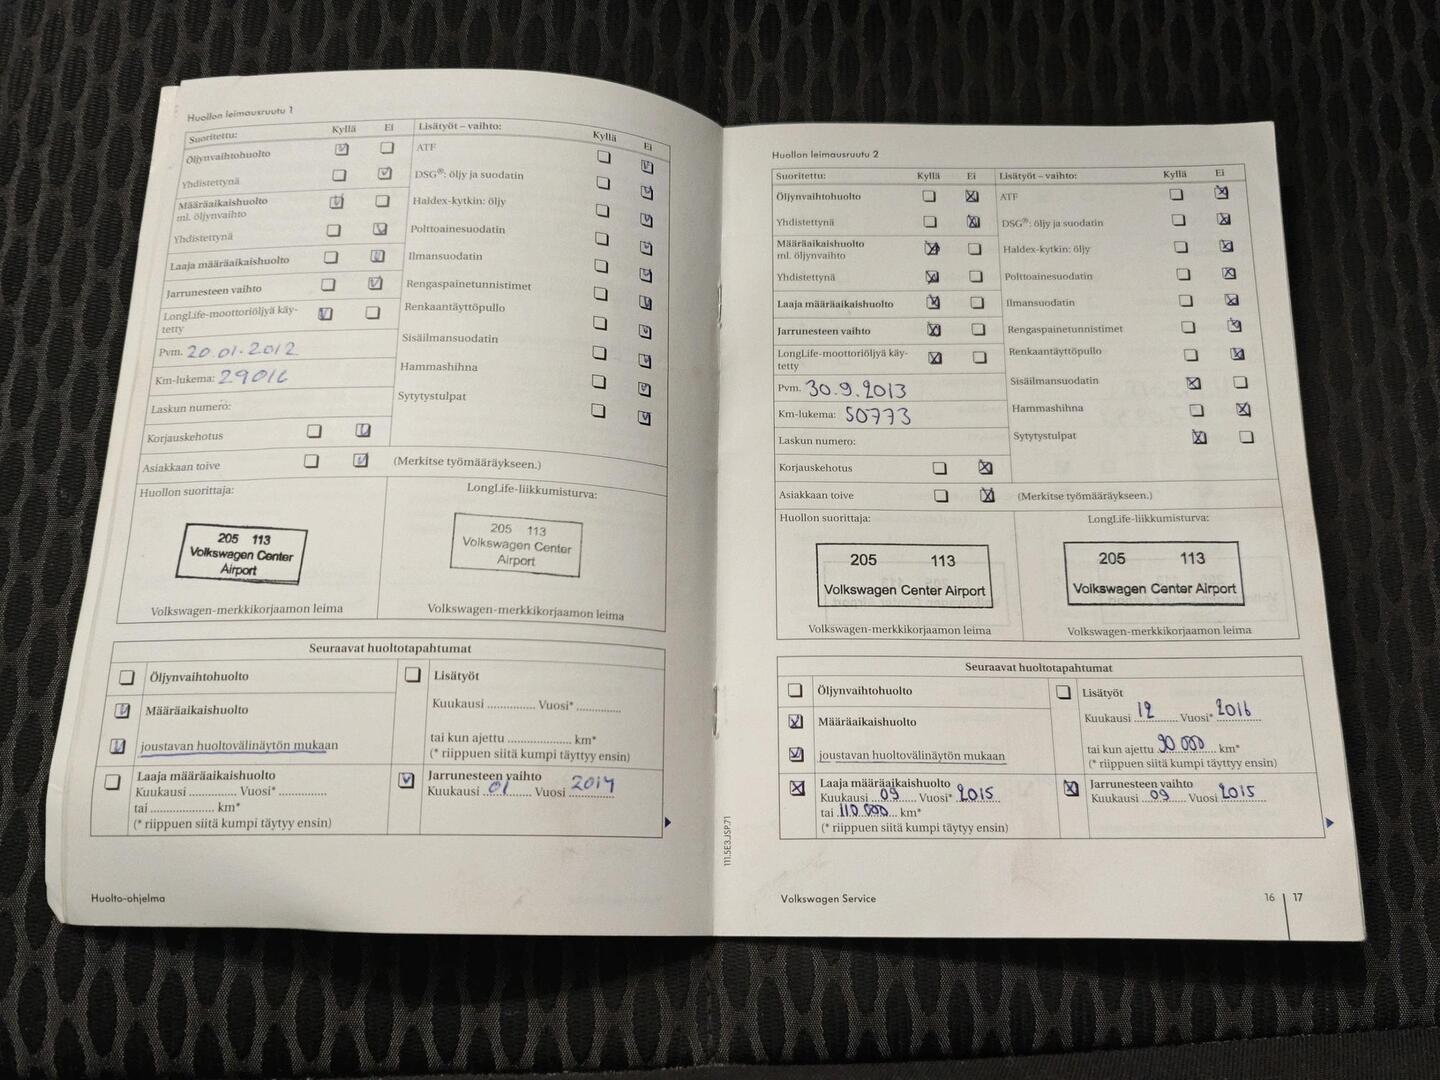 Huollon leimausruutu 1
Suoritettu: Kyllä Ei
Öljynvaihtohuolto
Yhdistettynä
Määräaikaishuolto
ml. öljynvaihto
Yhdistettynä
Laaja määräaikaishuolto
Jarrunesteen vaihto
LongLife-moottoriöljyä käy-
tetty
Pvm. 20.01.2012
Km-lukema: 29016
Laskun numero:
Korjauskehotus
Asiakkaan toive
Lisätyöt – vaihto: Kyllä Ei
ATF
DSG®: öljy ja suodatin
Haldex-kytkin: öljy
Polttoainesuodatin
Ilmansuodatin
Rengaspainetunnistimet
Renkaantäyttöpullo
Sisäilmansuodatin
Hammashihna
Sytytystulpat
(Merkitse työmääräykseen.)
Huollon suorittaja:
205 113
Volkswagen Center
Airport
Volkswagen-merkkikorjaamon leima
LongLife-liikkumisturva:
205 113
Volkswagen Center
Airport
Volkswagen-merkkikorjaamon leima
Seuraavat huoltotapahtumat
Öljynvaihtohuolto
Määräaikaishuolto
joustavan huoltovälinäytön mukaan
Laaja määräaikaishuolto
Kuukausi ............. Vuosi* .............
tai .................. km*
(* riippuen siitä kumpi täytyy ensin)
Lisätyöt
Kuukausi ............. Vuosi* .............
tai kun ajettu .................. km*
(* riippuen siitä kumpi täyttyy ensin)
Jarrunesteen vaihto
Kuukausi 01 Vuosi 2014
Huolto-ohjelma
Huollon leimausruutu 2
Suoritettu: Kyllä Ei
Öljynvaihtohuolto
Yhdistettynä
Määräaikaishuolto
ml. öljynvaihto
Yhdistettynä
Laaja määräaikaishuolto
Jarrunesteen vaihto
LongLife-moottoriöljyä käy-
tetty
Pvm. 30.9.2013
Km-lukema: 50773
Laskun numero:
Korjauskehotus
Asiakkaan toive
Lisätyöt – vaihto: Kyllä Ei
ATF
DSG®: öljy ja suodatin
Haldex-kytkin: öljy
Polttoainesuodatin
Ilmansuodatin
Rengaspainetunnistimet
Renkaantäyttöpullo
Sisäilmansuodatin
Hammashihna
Sytytystulpat
(Merkitse työmääräykseen.)
Huollon suorittaja:
205 113
Volkswagen Center Airport
Volkswagen-merkkikorjaamon leima
LongLife-liikkumisturva:
205 113
Volkswagen Center Airport
Volkswagen-merkkikorjaamon leima
Seuraavat huoltotapahtumat
Öljynvaihtohuolto
Määräaikaishuolto
joustavan huoltovälinäytön mukaan
Laaja määräaikaishuolto
Kuukausi 09 Vuosi* 2015
tai 110 000 km*
(* riippuen siitä kumpi täytyy ensin)
Lisätyöt
Kuukausi 12 Vuosi* 2016
tai kun ajettu 90 000 km*
(* riippuen siitä kumpi täyttyy ensin)
Jarrunesteen vaihto
Kuukausi 09 Vuosi 2015
111.5E3.JSP.71
Volkswagen Service
16 17